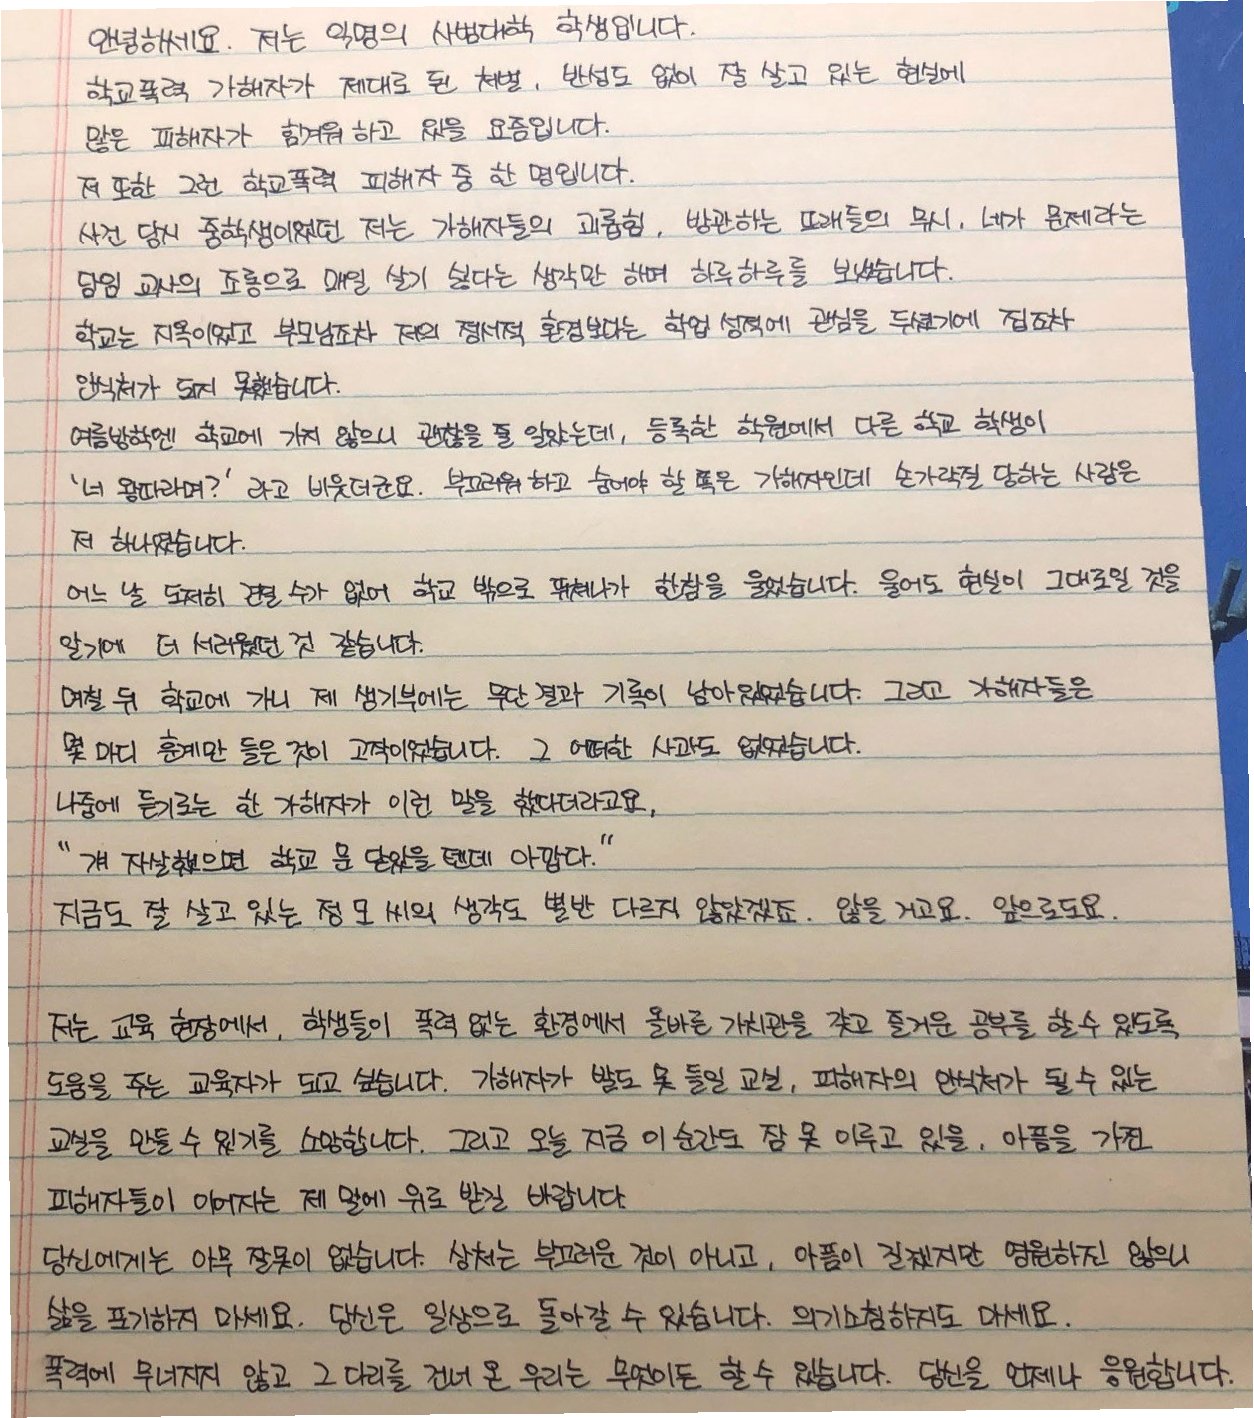 안녕하세요. 저는 익명의 사범대학 학생입니다.
학교폭력 가해자가 제대로 된 처벌, 반성도 없이 잘 살고 있는 현실에
많은 피해자가 힘겨워 하고 있을 요즘입니다.
저 또한 그런 학교폭력 피해자 중 한 명입니다.
사건 당시 중학생이었던 저는 가해자들의 괴롭힘, 방관하는 또래들의 무시, 네가 문제라는
담임 교사의 조롱으로 매일 살기 싫다는 생각만 하며 하루하루를 보냈습니다.
학교는 지옥이었고 부모님조차 저의 정서적 환경보다는 학업 성적에 관심을 두셨기에 집조차
안식처가 되지 못했습니다.
여름방학엔 학교에 가지 않으니 괜찮을 줄 알았는데, 등록한 학원에서 다른 학교 학생이
'너 왕따라며?' 라고 비웃더군요. 부끄러워 하고 숨어야 할 쪽은 가해자인데 손가락질 당하는 사람은
저 하나였습니다.
어느 날 도저히 견딜 수가 없어 학교 밖으로 뛰쳐나가 한참을 울었습니다. 울어도 현실이 그대로일 것을
알기에 더 서러웠던 것 같습니다.
며칠 뒤 학교에 가니 제 생기부에는 무단 결과 기록이 남아있었습니다. 그리고 가해자들은
몇 마디 훈계만 들은 것이 고작이었습니다. 그 어떠한 사과도 없었습니다.
나중에 듣기로는 한 가해자가 이런 말을 했다더라고요,
"걔 자살했으면 학교 문 닫았을 텐데 아깝다."
지금도 잘 살고 있는 정 모 씨의 생각도 별반 다르지 않았겠죠. 않을 거고요. 앞으로도요.
저는 교육 현장에서, 학생들이 폭력 없는 환경에서 올바른 가치관을 갖고 즐거운 공부를 할 수 있도록
도움을 주는 교육자가 되고 싶습니다. 가해자가 발도 못 들일 교실, 피해자의 안식처가 될 수 있는
교실을 만들 수 있기를 소망합니다. 그리고 오늘 지금 이 순간도 잠 못 이루고 있을, 아픔을 가진
피해자들이 이어지는 제 말에 위로 받길 바랍니다.
당신에게는 아무 잘못이 없습니다. 상처는 부끄러운 것이 아니고, 아픔이 길겠지만 영원하진 않으니
삶을 포기하지 마세요. 당신은 일상으로 돌아갈 수 있습니다. 의기소침하지도 마세요.
폭력에 무너지지 않고 그 다리를 건너 온 우리는 무엇이든 할 수 있습니다. 당신을 언제나 응원합니다.